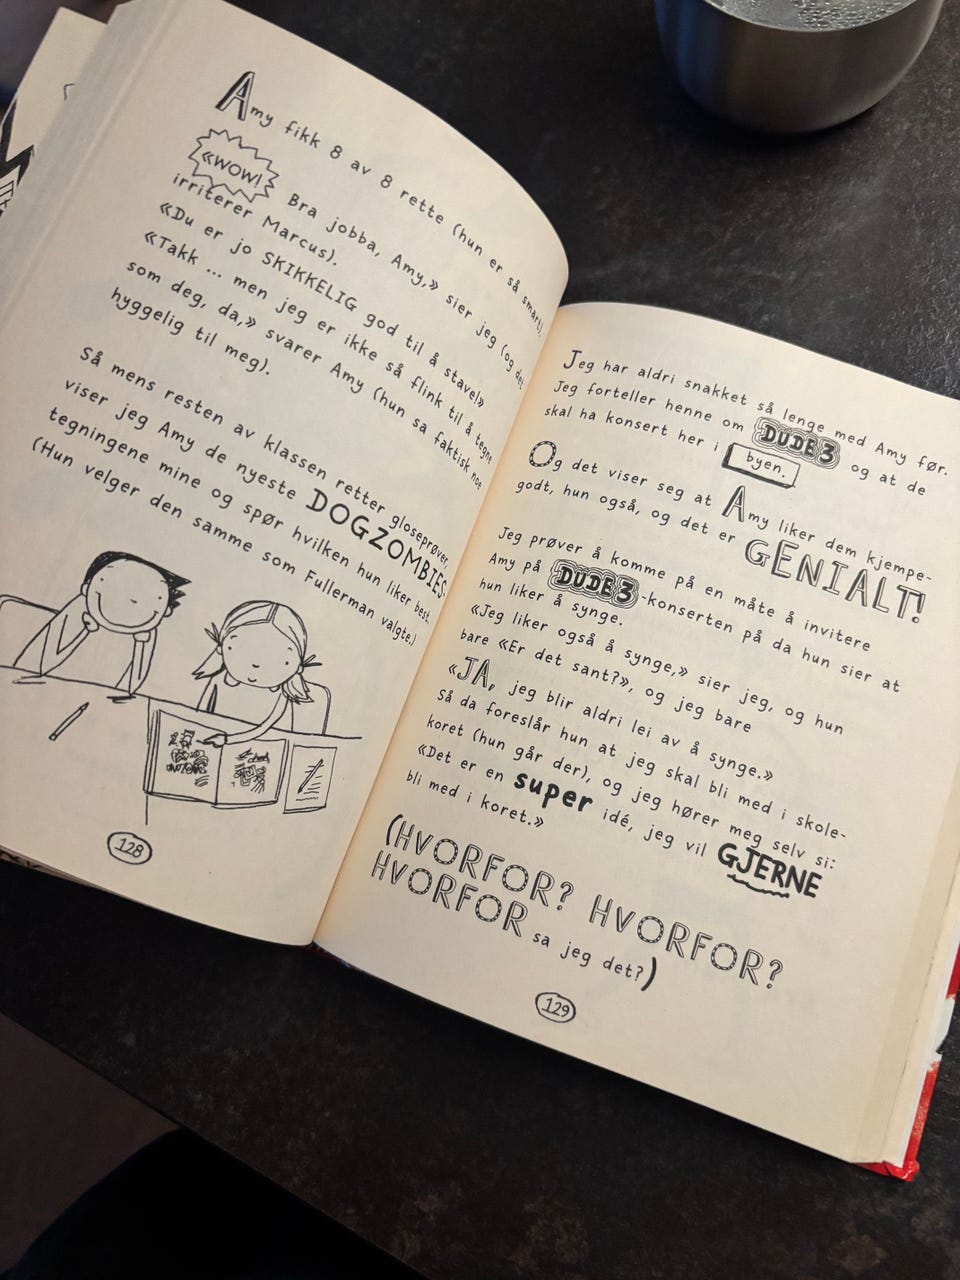 Amy fikk 8 av 8 rette (hun er så smart).
«WOW! Bra jobba, Amy,» sier jeg (og det
irriterer Marcus).
«Du er jo SKIKKELIG god til å stave!»
«Takk ... men jeg er ikke så flink til å tegne
som deg, da,» svarer Amy (hun sa faktisk noe
hyggelig til meg).
Så mens resten av klassen retter gloseprøver,
viser jeg Amy de nyeste DOGZOMBIES-
tegningene mine og spør hvilken hun liker best.
(Hun velger den samme som Fullerman valgte.)
128
Jeg har aldri snakket så lenge med Amy før.
Jeg forteller henne om DUDE3 og at de
skal ha konsert her i byen.
Og det viser seg at Amy liker dem kjempe-
godt, hun også, og det er GENIALT!
Jeg prøver å komme på en måte å invitere
Amy på DUDE3-konserten på da hun sier at
hun liker å synge.
«Jeg liker også å synge,» sier jeg, og hun
bare «Er det sant?», og jeg bare
«JA, jeg blir aldri lei av å synge.»
Så da foreslår hun at jeg skal bli med i skole-
koret (hun går der), og jeg hører meg selv si:
«Det er en super idé, jeg vil GJERNE
bli med i koret.»
(HVORFOR? HVORFOR?
HVORFOR sa jeg det?)
129